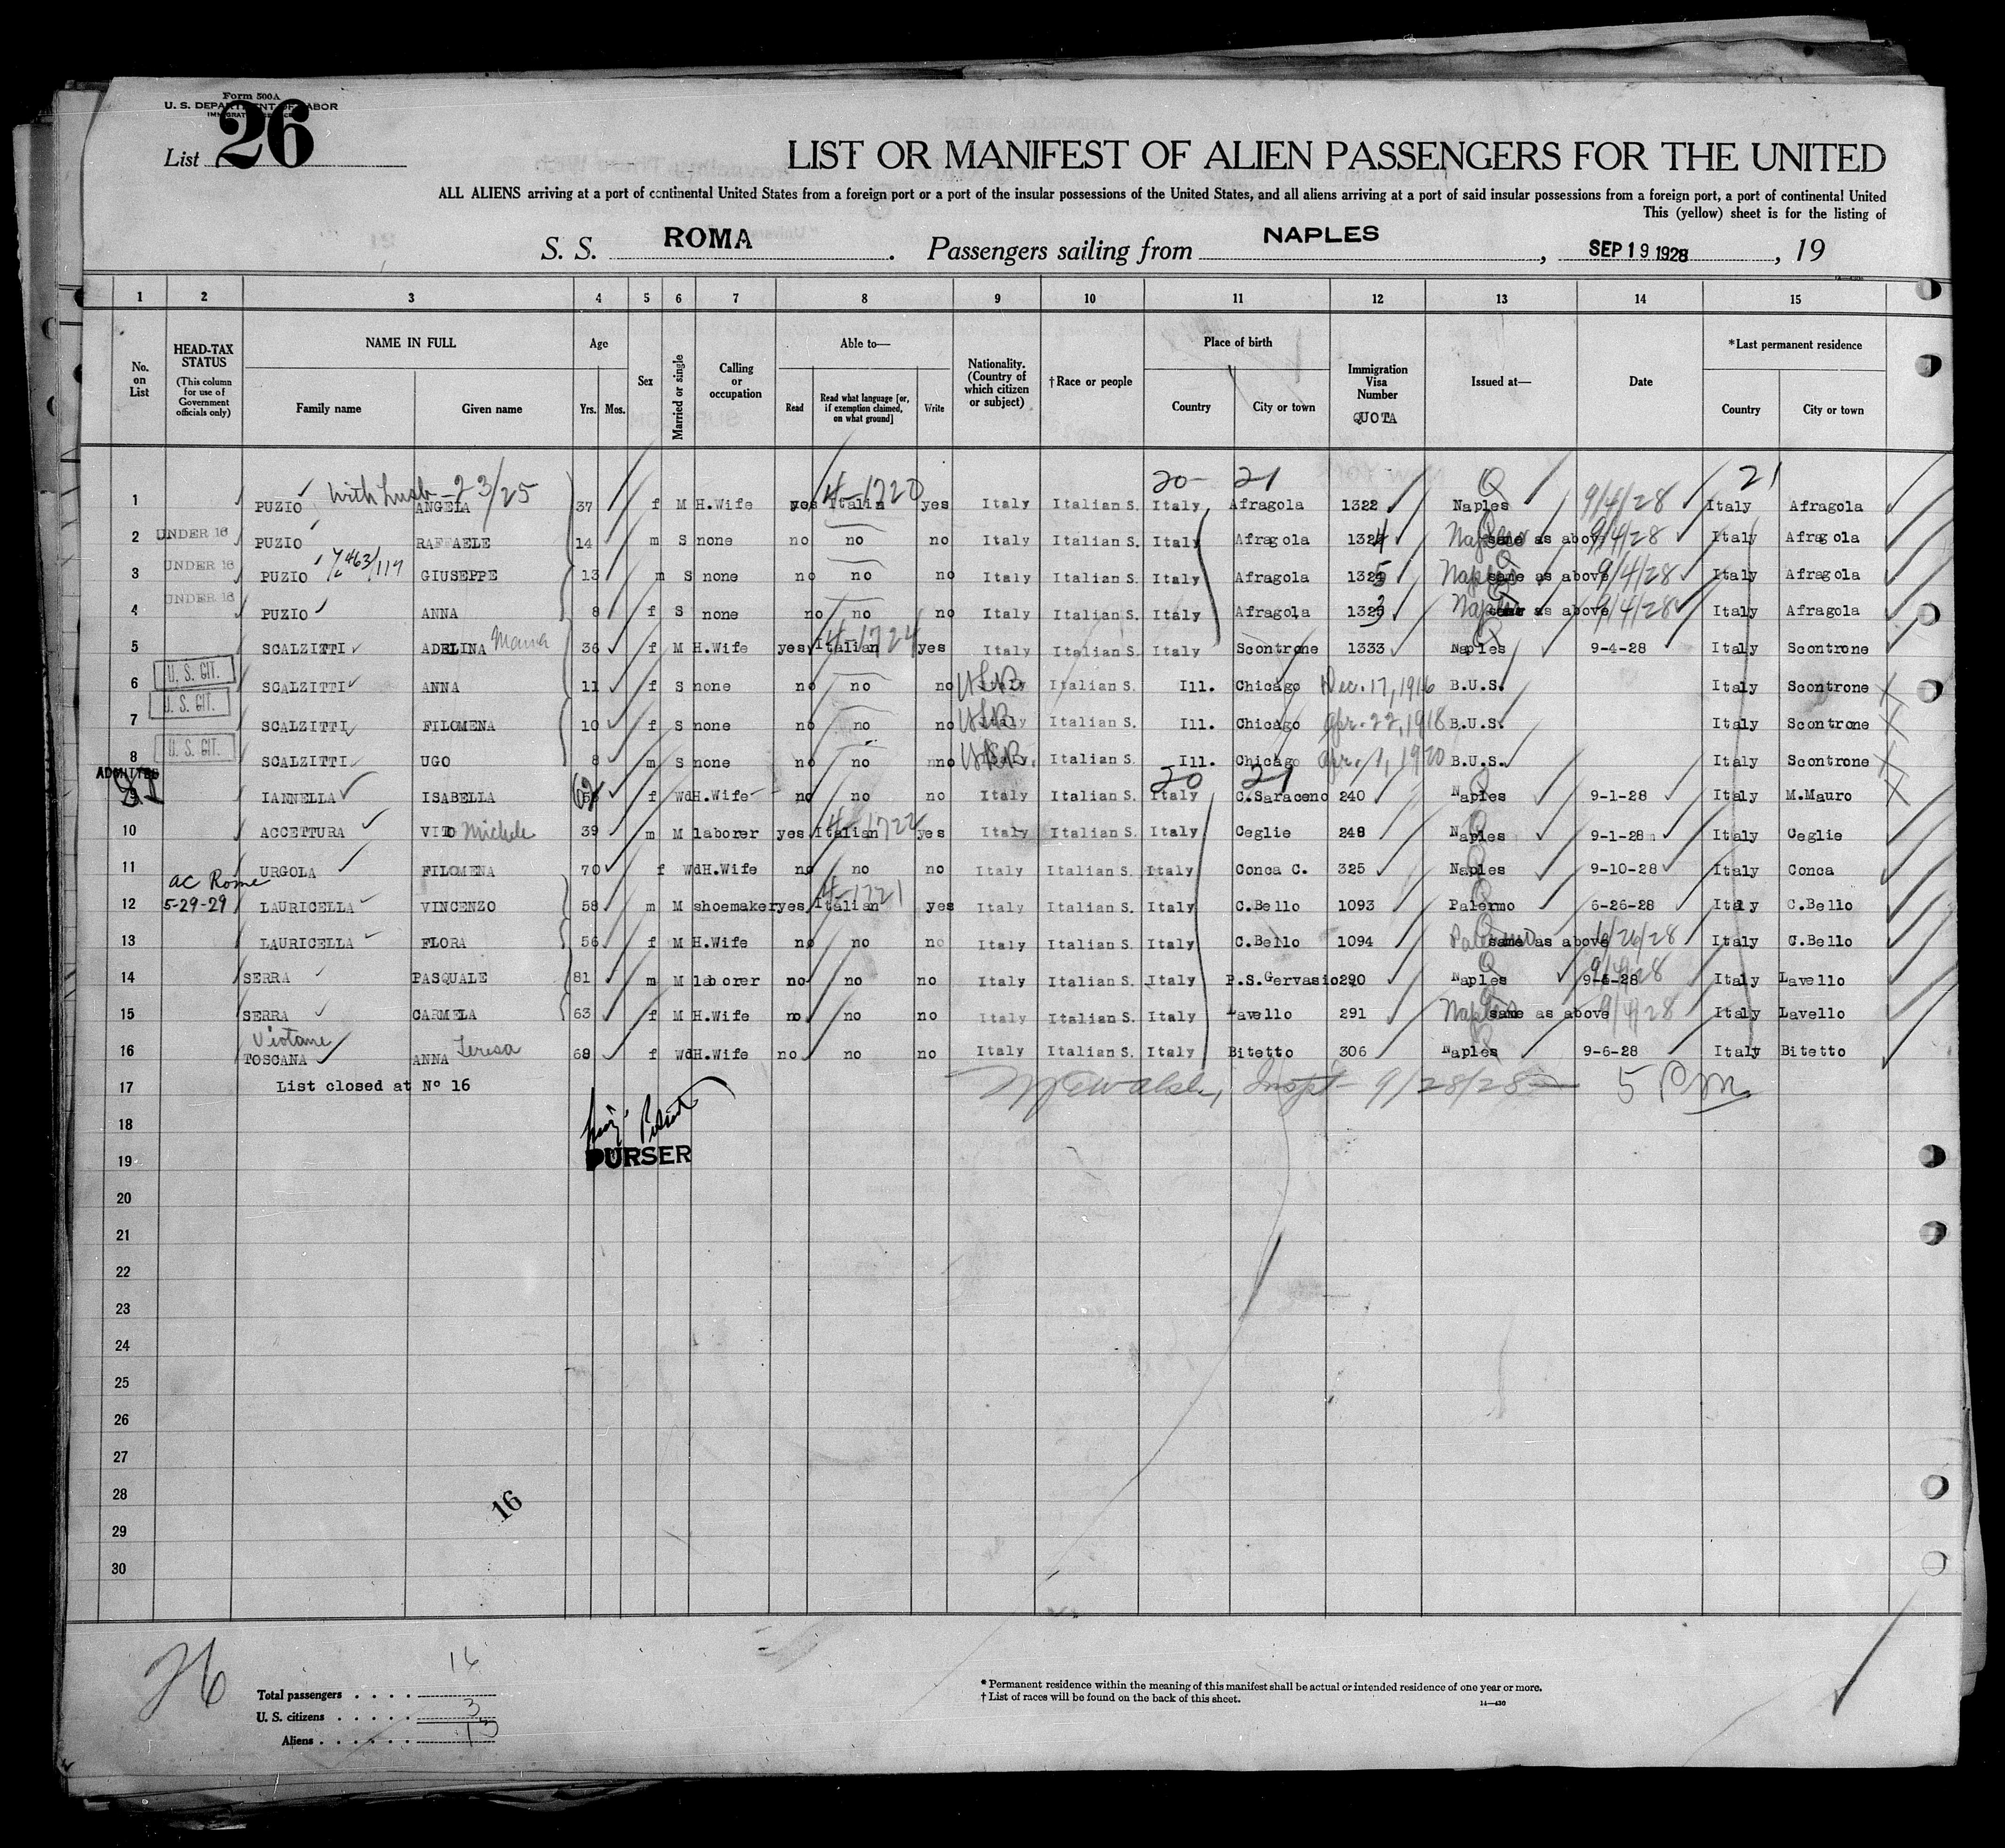 Form 500A
U. S. DEPARTMENT OF LABOR
IMMIGRATION SERVICE
List 26
LIST OR MANIFEST OF ALIEN PASSENGERS FOR THE UNITED
ALL ALIENS arriving at a port of continental United States from a foreign port or a port of the insular possessions of the United States, and all aliens arriving at a port of said insular possessions from a foreign port, a port of continental United
This (yellow) sheet is for the listing of
S. S. ROMA. Passengers sailing from NAPLES, SEP 19 1928, 19
1 2 3 4 5 6 7 8 9 10 11 12 13 14 15
No. on List
HEAD-TAX STATUS (This column for use of Government officials only)
NAME IN FULL Family name Given name
Age Yrs. Mos.
Sex
Married or single
Calling or occupation
Able to— Read Read what language [or, if exemption claimed, on what ground] Write
Nationality. (Country of which citizen or subject)
†Race or people
Place of birth Country City or town
Immigration Visa Number QUOTA
Issued at—
Date
*Last permanent residence Country City or town
With husb - 23/25 4-1720 20- 21 Q 21
1 PUZIO ANGELA 37 f M H.Wife yes Italin yes Italy Italian S. Italy Afragola 1322 Naples 9/4/28 Italy Afragola
2 UNDER 16 PUZIO RAFFAELE 14 m S none no no no Italy Italian S. Italy Afragola 1324 Naples same as above 9/4/28 Italy Afragola
3 UNDER 16 PUZIO GIUSEPPE 13 m S none no no no Italy Italian S. Italy Afragola 1325 Naples same as above 9/4/28 Italy Afragola
4 UNDER 16 PUZIO ANNA 8 f S none no no no Italy Italian S. Italy Afragola 1323 Naples same as above 9/4/28 Italy Afragola
5 SCALZITTI ADELINA Maria 36 f M H.Wife yes Italian 4-1724 yes Italy Italian S. Italy Scontrone 1333 Naples 9-4-28 Italy Scontrone
6 U. S. CIT. SCALZITTI ANNA 11 f S none no no no Italy USB Italian S. Ill. Chicago Dec. 17, 1916 B.U.S. Italy Scontrone
7 U. S. CIT. SCALZITTI FILOMENA 10 f S none no no no Italy USB Italian S. Ill. Chicago Apr. 22, 1918 B.U.S. Italy Scontrone
8 U. S. CIT. SCALZITTI UGO 8 m S none no no no USB Italian S. Ill. Chicago Apr. 1, 1920 B.U.S. Italy Scontrone
ADMITTED 20 21
9 IANNELLA ISABELLA f Wd H.Wife no no no Italy Italian S. Italy C.Saraceno 240 Naples 9-1-28 Italy M.Mauro
10 ACCETTURA VITO Michele 39 m M laborer yes Italian 4-1722 yes Italy Italian S. Italy Ceglie 248 Naples 9-1-28 Italy Ceglie
11 URGOLA FILOMENA 70 f Wd H.Wife no no no Italy Italian S. Italy Conca C. 325 Naples 9-10-28 Italy Conca
ac Rome 4-1721
12 5-29-29 LAURICELLA VINCENZO 58 m M shoemaker yes Italian yes Italy Italian S. Italy C.Bello 1093 Palermo 6-26-28 Italy C.Bello
13 LAURICELLA FLORA 56 f M H.Wife no no no Italy Italian S. Italy C.Bello 1094 Palermo same as above 6/26/28 Italy C.Bello
14 SERRA PASQUALE 81 m M laborer no no no Italy Italian S. Italy P.S.Gervasio 290 Naples 9/4/28 Italy Lavello
15 SERRA CARMELA 63 f M H.Wife no no no Italy Italian S. Italy Lavello 291 Naples same as above 9/4/28 Italy Lavello
16 TOSCANA ANNA Teresa 68 f Wd H.Wife no no no Italy Italian S. Italy Bitetto 306 Naples 9-6-28 Italy Bitetto
17 List closed at Nº 16 Inspt 9/28/28 5 P.M.
18
19 PURSER
20
21
22
23
24
25
26
27
28 16
29
30
26
Total passengers . . . . 16
U. S. citizens . . . . . 3
Aliens . . . . . . 13
* Permanent residence within the meaning of this manifest shall be actual or intended residence of one year or more.
† List of races will be found on the back of this sheet.
14—430